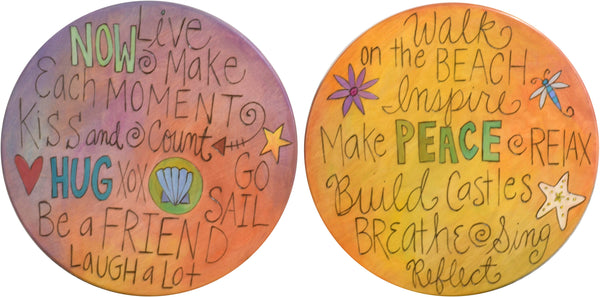 Live
NOW Make
Each MOMENT
Kiss and Count
HUG XOX GO
SAIL
Be a FRIEND
LAUGH a Lot
Walk
on the BEACH
Inspire
Make PEACE RELAX
Build Castles
BREATHE Sing
Reflect